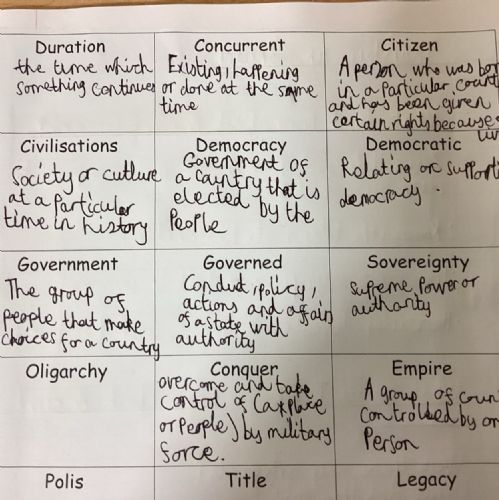 Duration
the time which
something continues
Concurrent
Existing, happening
or done at the same
time
Citizen
A person who was
in a particular
and has been given
certain rights because
Civilisations
Society or culture
at a particular
time in history
Democracy
Government of
a country that is
elected by the
People
Democratic
Relating or
democracy.
Government
The group of
people that make
choices for a country
Governed
Conduct, policy,
actions and affairs
of a state with
authority
Sovereignty
supreme power or
authority
Oligarchy
Conquer
overcome and take
control of (a place
or people) by military
force.
Empire
A group of
controlled by
Person
Polis
Title
Legacy